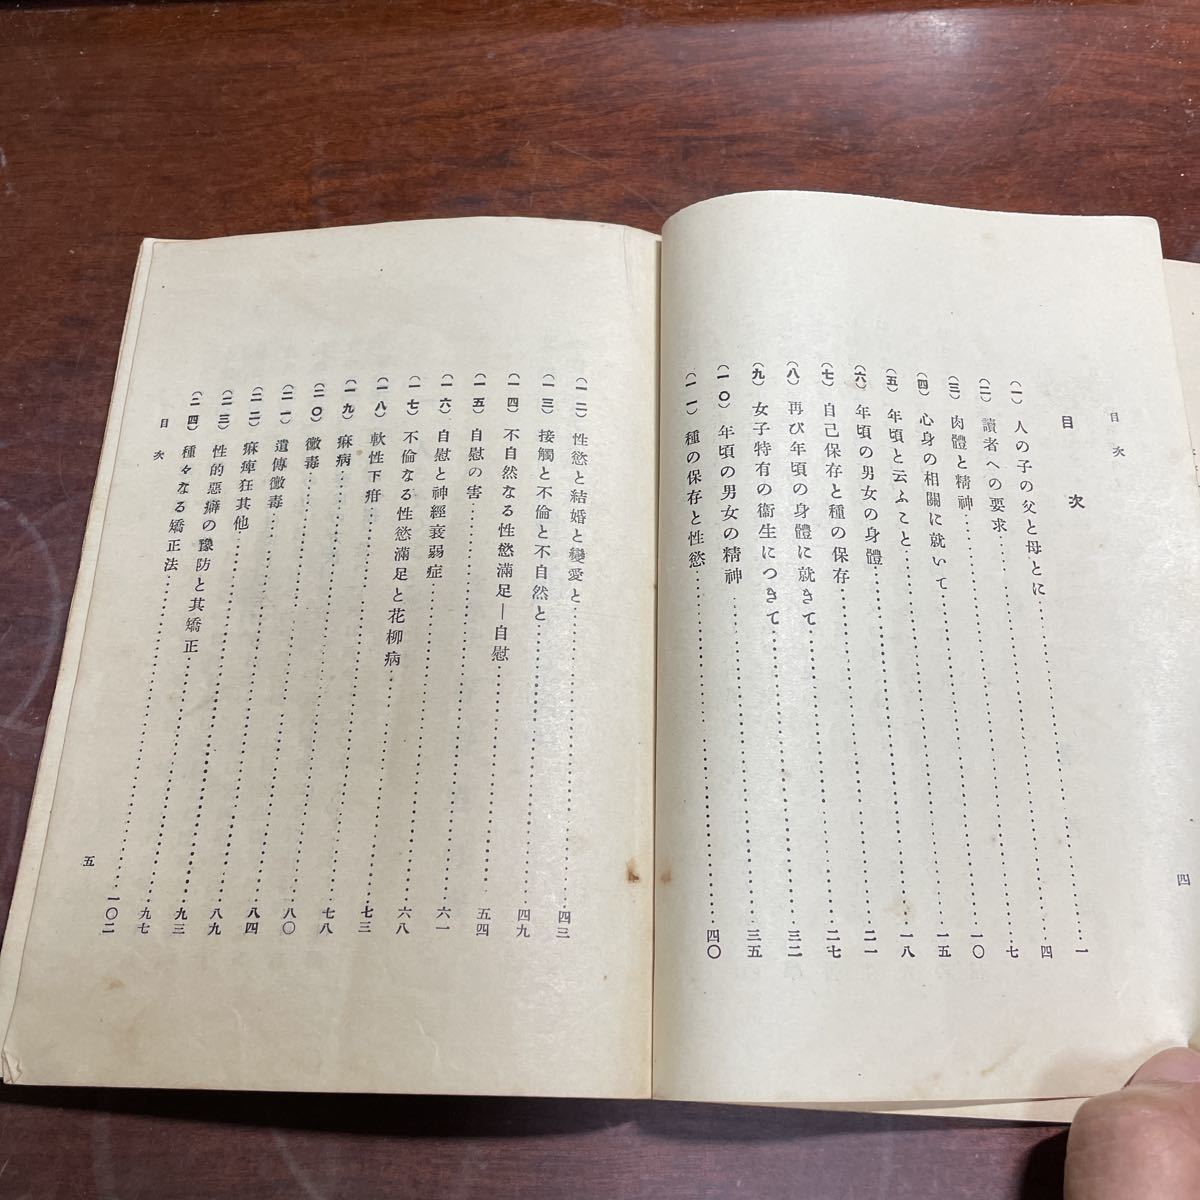 目次
四
目次
(一) 人の子の父と母とに……一
(二) 讀者への要求……四
(三) 肉體と精神……七
(四) 心身の相關に就いて……一〇
(五) 年頃と云ふこと……一五
(六) 年頃の男女の身體……一八
(七) 自己保存と種の保存……二一
(八) 再び年頃の身體に就きて……二七
(九) 女子特有の衞生につきて……三二
(一〇) 年頃の男女の精神……三五
(一一) 種の保存と性慾……四〇
(一二) 性慾と結婚と戀愛と……四三
(一三) 接觸と不倫と不自然と……四九
(一四) 不自然なる性慾滿足—自慰……五四
(一五) 自慰の害……六一
(一六) 自慰と神經衰弱症……六八
(一七) 不倫なる性慾滿足と花柳病……七三
(一八) 軟性下疳……七八
(一九) 痳病……八〇
(二〇) 黴毒……八四
(二一) 遺傳黴毒……八九
(二二) 痲痺狂其他……九三
(二三) 性的惡癖の豫防と其矯正……九七
(二四) 種々なる矯正法……一〇二
目次
五